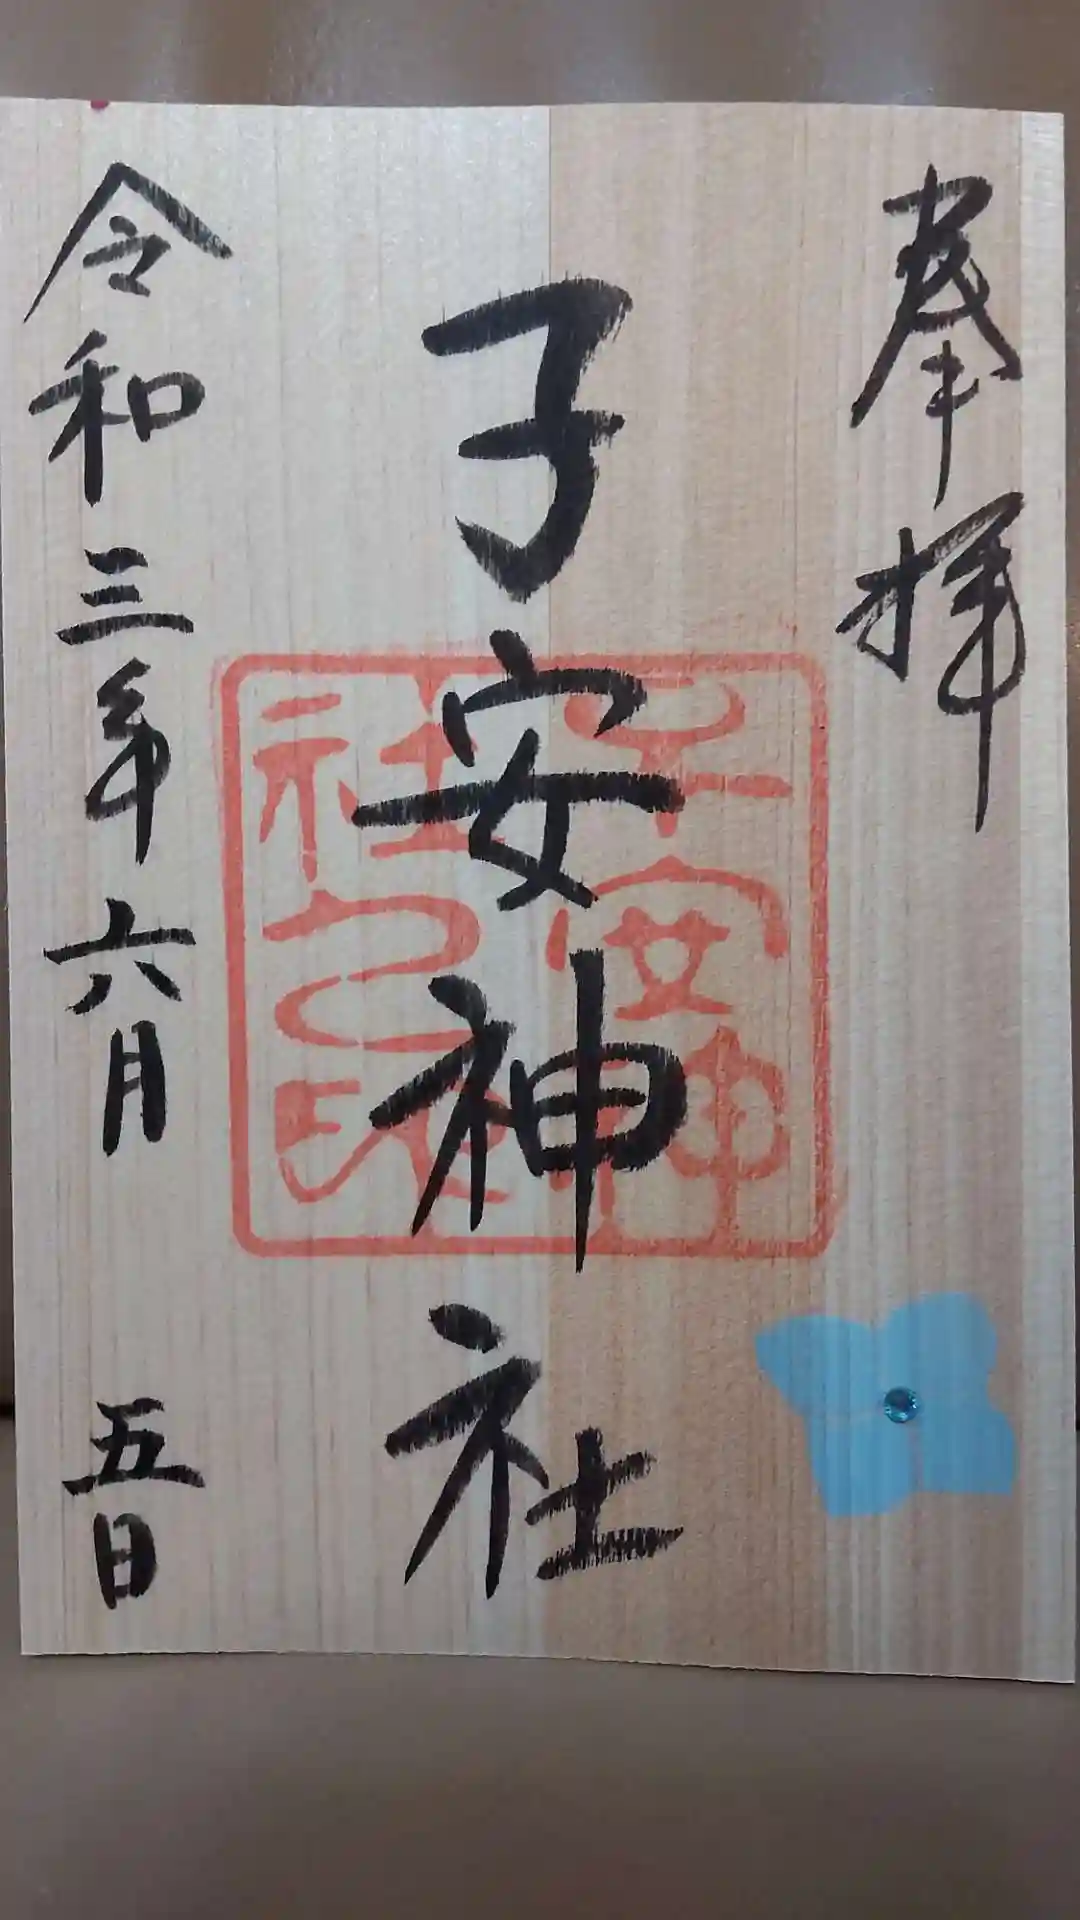 奉拝
子安神社
子安神社之印
令和三年六月五日